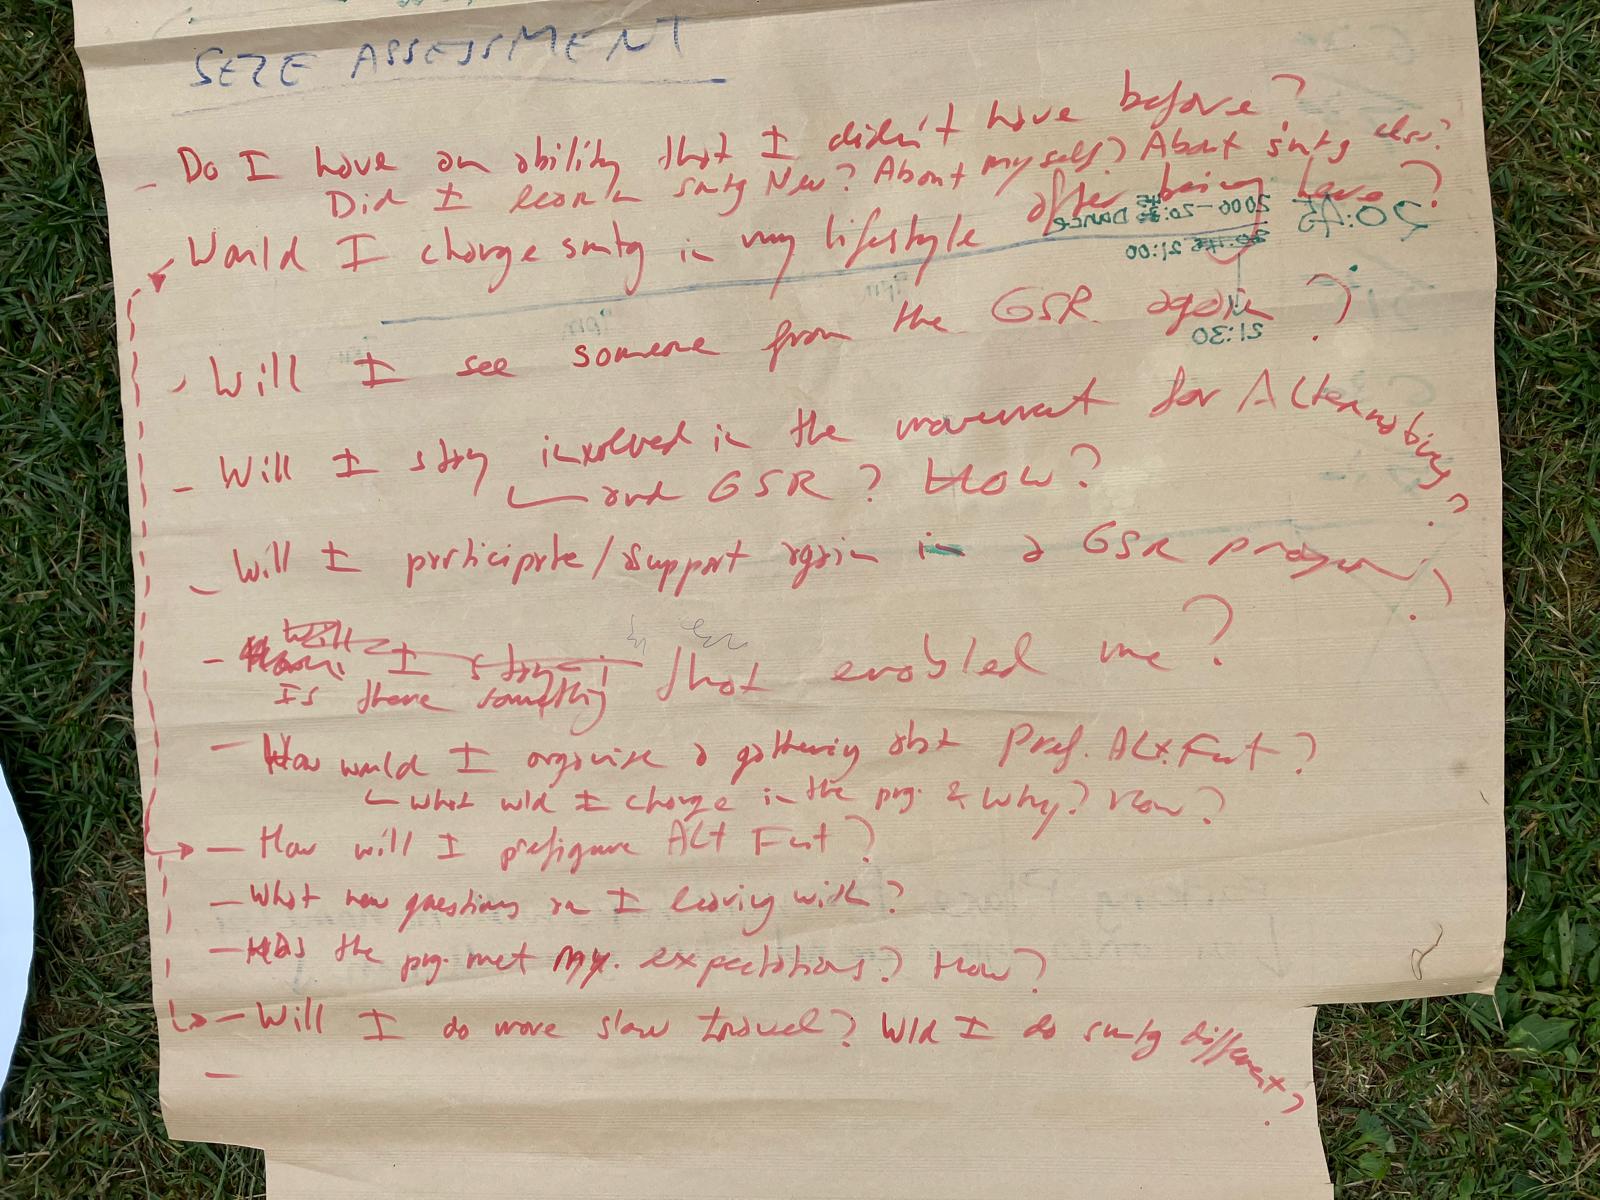 SEZE ASSESSMENT
- Do I have an ability that I didn't have before?
Did I learn smtg New? About myself? About smtg else?
- Would I change smtg in my lifestyle after being here?
- Will I see someone from the GSR again?
- Will I stay involved in the movement for Alternatives?
and GSR? How?
- Will I participate/support again in a GSR program?
- Is there something that enabled me?
- How would I organise a gathering abt Pref. ALt. Fut?
what wld I change in the prg. & Why? How?
- How will I prefigure ALt Fut?
- What new questions am I leaving with?
- HAs the prg. met my. expectations? How?
- Will I do more slow travel? Wld I do smtg different?
-
20:45
2000-20:45 DANCE
21:00
21:30
9pm